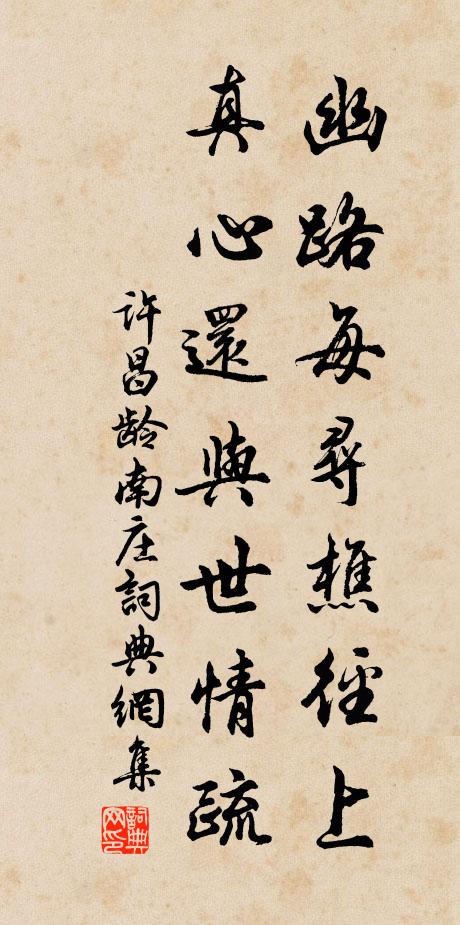 幽路每尋樵徑上
真心還與世情疏
許昌龄南庄詞典網集
詞典網印